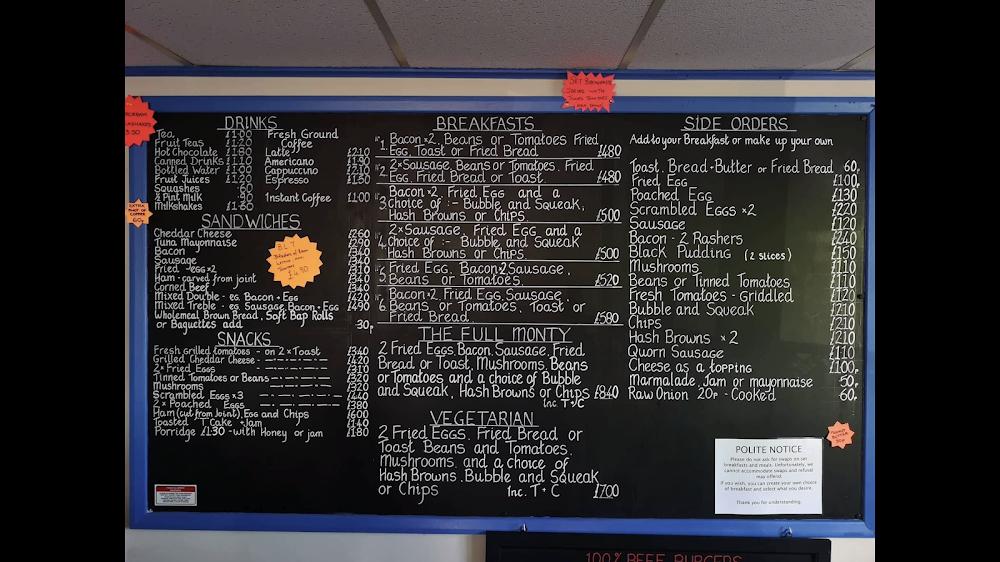 SET BREAKFAST
DRINKS
Tea £1·00 Fresh Ground
Fruit Teas £1·20 Coffee
Hot Chocolate £1·80 Latte £2·10
Canned Drinks £1·10 Americano £1·90
Bottled Water £1·00 Cappuccino £2·10
Fruit Juices £1·20 Espresso £1·50
Squashes ·60
½ Pint Milk ·90 Instant Coffee £1·00
Milkshakes
EXTRA
SHOT OF
COFFEE
60p
SANDWICHES
Cheddar Cheese £2·60
Tuna Mayonnaise £2·90
Bacon £3·40
Sausage £3·40
Fried Egg x2 £3·10
Ham - carved from joint £3·40
Corned Beef £3·40
Mixed Double - eg. Bacon + Egg £4·20
Mixed Treble - eg. Sausage, Bacon + Egg £4·90
Wholemeal Brown Bread, Soft Bap Rolls
or Baguettes add 30p
B.L.T
£4.30
SNACKS
Fresh grilled tomatoes - on 2 x Toast £3·40
Grilled Cheddar Cheese - £4·20
2 x Fried Eggs £3·10
Tinned Tomatoes or Beans £3·20
Mushrooms £3·20
Scrambled Eggs x3 £4·40
2 x Poached Eggs £3·80
Ham (cut from Joint), Egg and Chips £6·00
Toasted 'T' Cake + Jam £1·40
Porridge £1·30 - with Honey or jam £1·80
BREAKFASTS
Nº1 Bacon x2, Beans or Tomatoes Fried
Egg, Toast or Fried Bread £4·80
Nº2 2 x Sausage, Beans or Tomatoes, Fried
Egg, Fried Bread or Toast £4·80
Nº3 Bacon x2, Fried Egg and a
choice of :- Bubble and Squeak,
Hash Browns or Chips £5·00
Nº4 2 x Sausage, Fried Egg and a
Choice of :- Bubble and Squeak
Hash Browns or Chips £5·00
Nº5 Fried Egg, Bacon x2 Sausage,
Beans or Tomatoes, £5·20
Nº6 Bacon x2, Fried Egg, Sausage,
Beans or Tomatoes, Toast or
Fried Bread £5·80
THE FULL MONTY
2 Fried Eggs, Bacon, Sausage, Fried
Bread or Toast, Mushrooms, Beans
or Tomatoes and a choice of Bubble
and Squeak, Hash Browns or Chips £8·40
Inc. T+C
VEGETARIAN
2 Fried Eggs, Fried Bread or
Toast Beans and Tomatoes,
Mushrooms, and a choice of
Hash Browns, Bubble and Squeak
or Chips Inc. T+C £7·00
SIDE ORDERS
Add to your Breakfast or make up your own
Toast, Bread + Butter or Fried Bread 60p
Fried Egg £1·00
Poached Egg £1·30
Scrambled Eggs x2 £2·20
Sausage £1·20
Bacon - 2 Rashers £2·40
Black Pudding (2 slices) £1·50
Mushrooms £1·10
Beans or Tinned Tomatoes £1·10
Fresh Tomatoes - Griddled £1·20
Bubble and Squeak £2·10
Chips £2·10
Hash Browns x2 £2·10
Quorn Sausage £1·10
Cheese as a topping £1·00p
Marmalade, Jam or mayonnaise 50p
Raw Onion 20p - Cooked 60p
POLITE NOTICE
Please do not ask for swaps on set
breakfasts and meals. Unfortunately, we
cannot accommodate swaps and refusal
may offend.
If you wish, you can create your own choice
of breakfast and select what you desire.
Thank you for understanding.
100% BEEF BURGERS